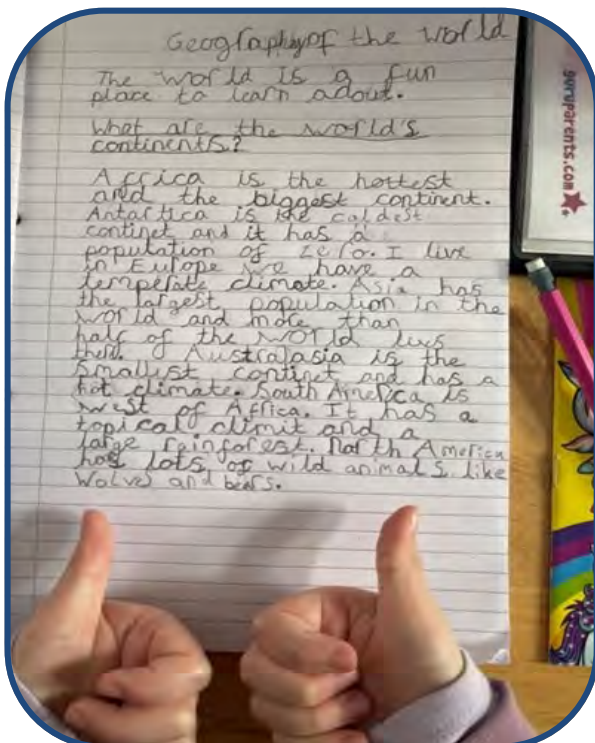 Geography of the World
The world is a fun
place to learn adout.
What are the world's
continents?
Africa is the hottest
and the biggest continent.
Antartica is the coldest
continet and it has a
population of zero. I live
in Europe we have a
temperate climate. Asia has
the largest population in the
world and more than
half of the world lives
there. Australasia is the
smallest continet and has a
hot climate. South America is
west of Africa. It has a
topical climit and a
large rainforest. North America
has lots of wild animals like
wolves and bears.
guruparents.com